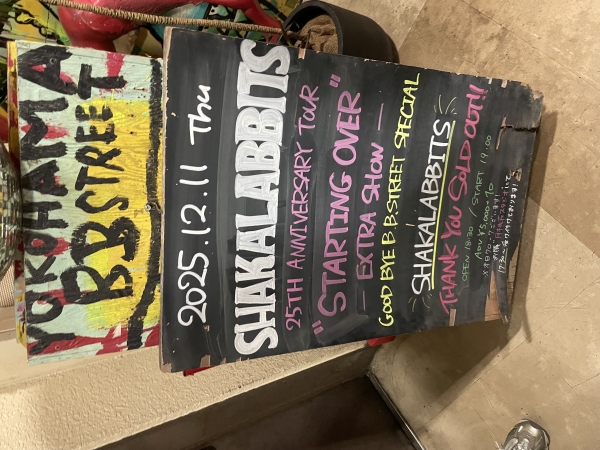 YOKOHAMA
BBSTREET
2025.12.11 Thu
SHAKALABBITS
25TH ANNIVERSARY TOUR
"STARTING OVER"
— EXTRA SHOW —
GOOD BYE B.B.STREET SPECIAL
SHAKALABBITS
THANK YOU SOLD OUT!!
OPEN 18:30 / START 19:00
ADV ¥5,000+1D